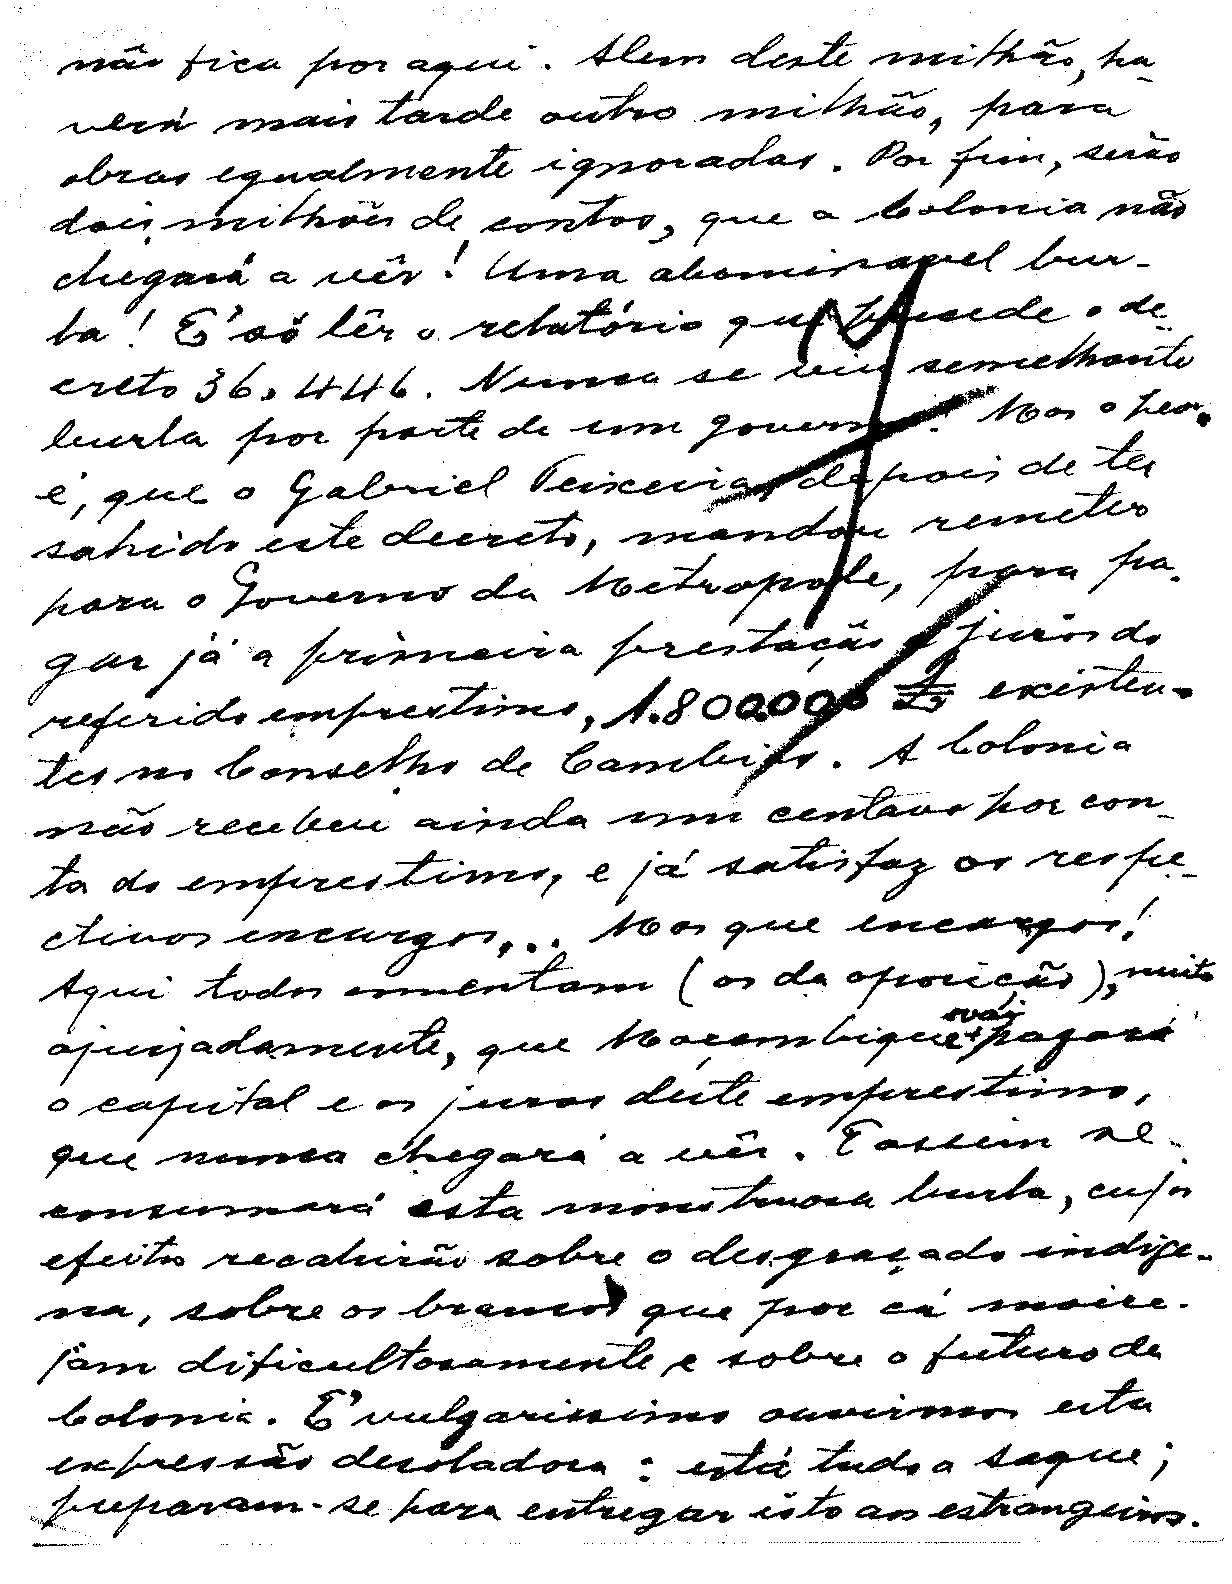 não fica por aqui. Alem deste milhão, ha-
verá mais tarde outro milhão, para
obras egualmente ignoradas. Por fim, serão
dois milhões de contos, que a Colonia não
chegará a vêr! Uma abominavel bur-
la! E' só lêr o relatório que precede o de-
creto 36.446. Nunca se viu semelhante
burla por parte de um governo! Mas o peor,
é, que o Gabriel Teixeira, depois de ter
sahido este decreto, mandou remeter
para o Governo da Metropole, para pa-
gar já a primeira prestação e juros do
referido emprestimo, 1.800.000 £ existen-
tes no Conselho de Cambios. A Colonia
não recebeu ainda um centavo por con-
ta do emprestimo, e já satisfaz os respe-
ctivos encargos... Mas que encargos!
Aqui todos comentam (os da oposição), muito
ajuizadamente, que Moçambique vai pagar
o capital e os juros deste emprestimo,
que nunca chegará a vêr. E assim se
consumará esta monstruosa burla, cujos
efeitos recahirão sobre o desgraçado indige-
na, sobre os brancos que por cá moire-
jam dificultosamente e sobre o futuro da
Colonia. E' vulgarissimo ouvirmos esta
expressão desoladora: está tudo a saque;
preparam-se para entregar isto aos estrangeiros.